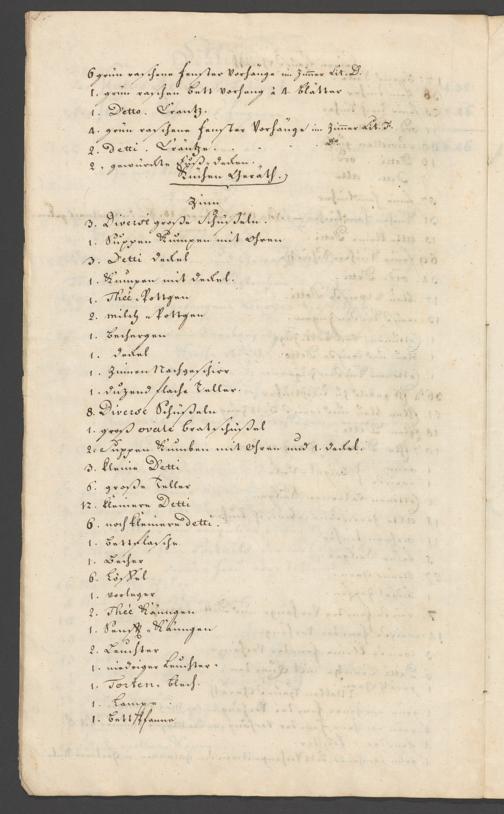 6 grün raschene fenster Vorhänge im Zimmer Lit. D.
1. grün raschen bett vorhang à 4. blätter
1. Detto. Crantz.
4. grün raschene fenster Vorhänge im Zimmer Lit. F.
2. Detti. Cräntze. . . . D.
2. gewürckte
Küchen Geräth.
Zinn
3. Diverse große Schüßeln.
1. Suppen Kumpen mit Ohren
3. Detti deckel
1. Kumpen mit deckel.
1. Thée Pottgen
2. milch Pottgen
1. bechergen
1. deckel
1. Zinnen Nachtgeschirr
1. duzend flache Teller.
8. Diverse Schüßeln
1. groß ovale bratschüßel
2. Suppen Kumben mit Ohren und 1. deckel.
3. kleine Detti
6. große Teller
12. kleinere Detti
6. noch kleinere detti.
1. bettflasche
1. becher
6. Löffel
1. vorleger
2. Thée Känngen
1. Senff Känngen
2. Leuchter
1. niedriger Leuchter.
1. Torten blech.
1. Lampe
1. bettpfanne